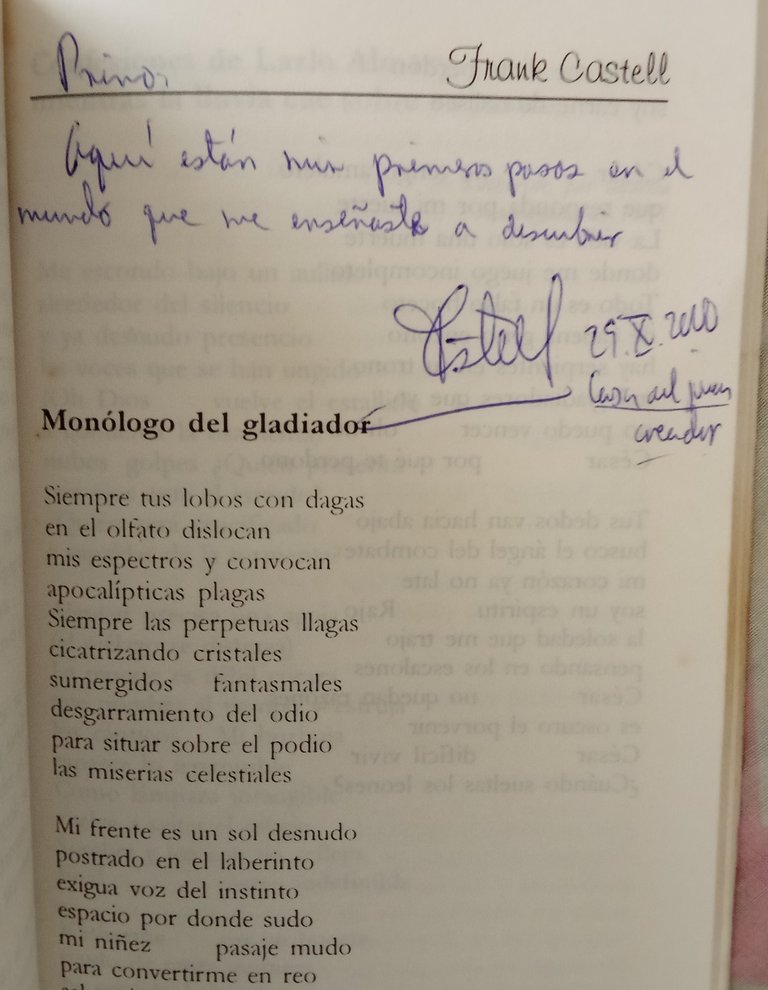 Primo,
Frank Castell
Aquí están mis primeros pasos en el
mundo que me enseñaste a descubrir
Castell 29.X.2010
Casa del joven
creador
Monólogo del gladiador
Siempre tus lobos con dagas
en el olfato dislocan
mis espectros y convocan
apocalípticas plagas
Siempre las perpetuas llagas
cicatrizando cristales
sumergidos fantasmales
desgarramiento del odio
para situar sobre el podio
las miserias celestiales
Mi frente es un sol desnudo
postrado en el laberinto
exigua voz del instinto
espacio por donde sudo
mi niñez pasaje mudo
para convertirme en reo